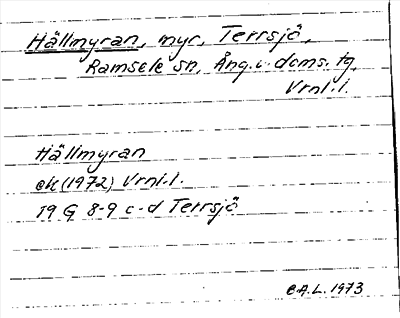 Hällmyran, myr, Terrsjö,
Ramsele sn, Ång. v. doms. tg,
Vrnl.l.
Hällmyran
ek (1972) Vrnl.l.
19 G 8-9 c-d Terrsjö
C.A.L. 1973